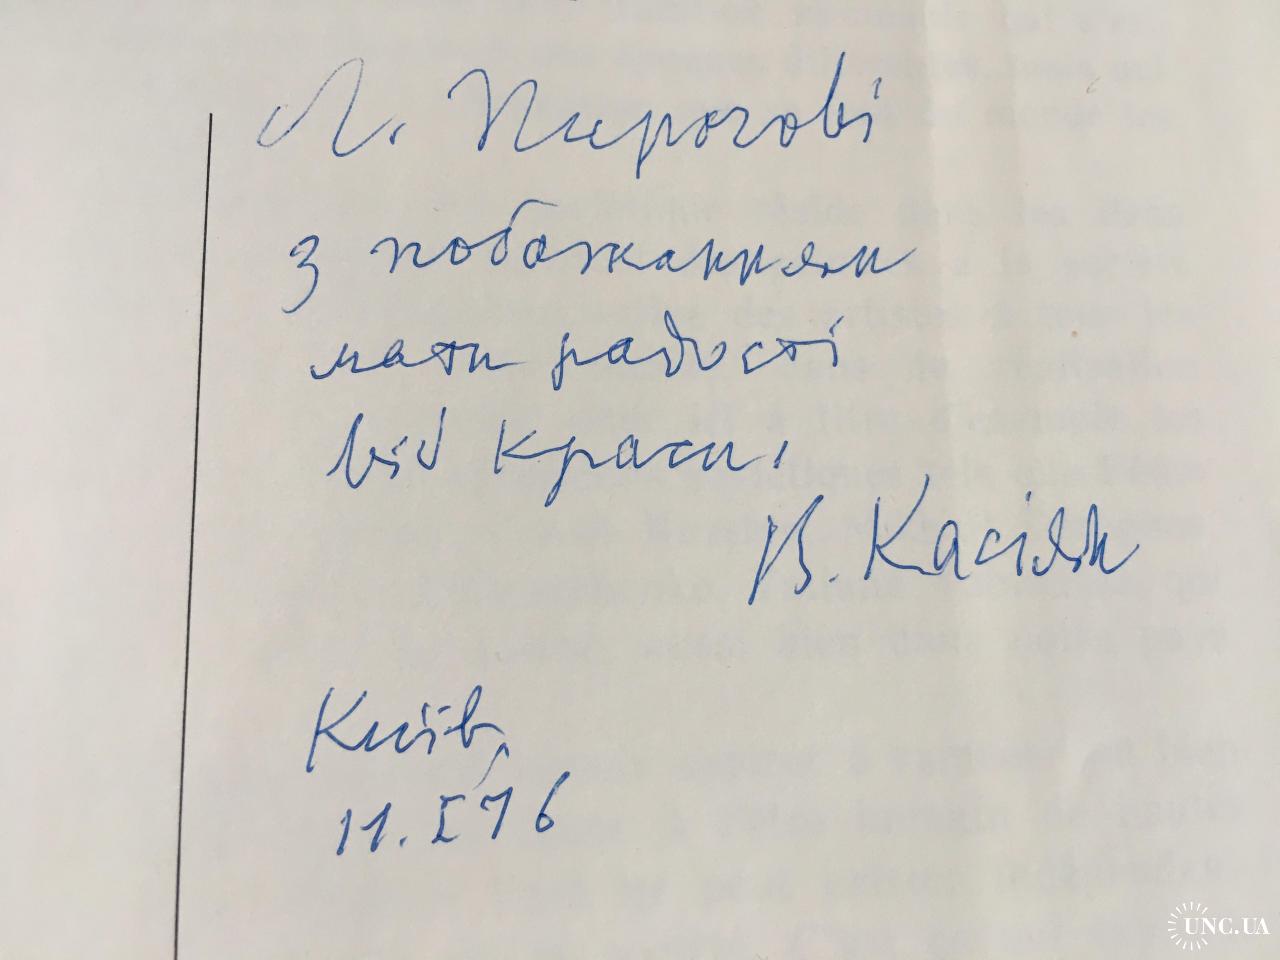 Л. Пирогові
з побажанням
мати радості
від краси.
В. Касіян
Київ,
11.I 76
UNC.UA